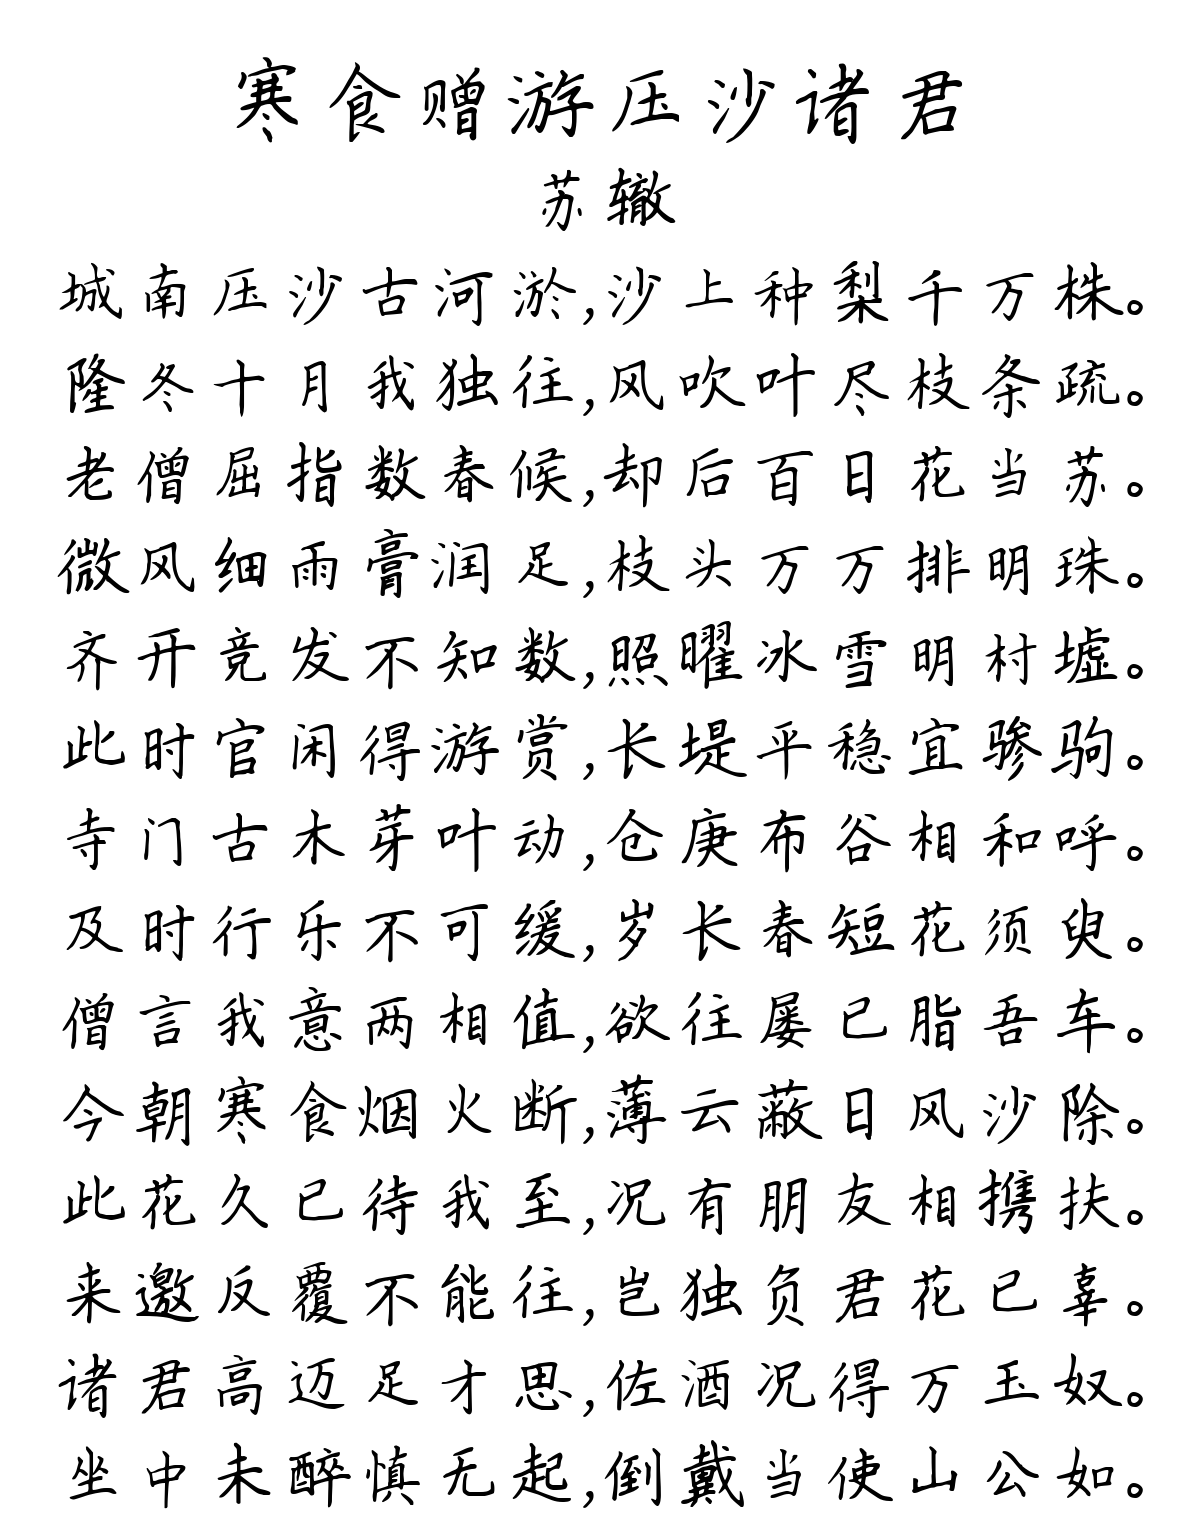 寒食赠游压沙诸君
苏辙
城南压沙古河淤,沙上种梨千万株。
隆冬十月我独往,风吹叶尽枝条疏。
老僧屈指数春候,却后百日花当苏。
微风细雨膏润足,枝头万万排明珠。
齐开竞发不知数,照曜冰雪明村墟。
此时官闲得游赏,长堤平稳宜骖驹。
寺门古木芽叶动,仓庚布谷相和呼。
及时行乐不可缓,岁长春短花须臾。
僧言我意两相值,欲往屡已脂吾车。
今朝寒食烟火断,薄云蔽日风沙除。
此花久已待我至,况有朋友相携扶。
来邀反覆不能往,岂独负君花已辜。
诸君高迈足才思,佐酒况得万玉奴。
坐中未醉慎无起,倒戴当使山公如。